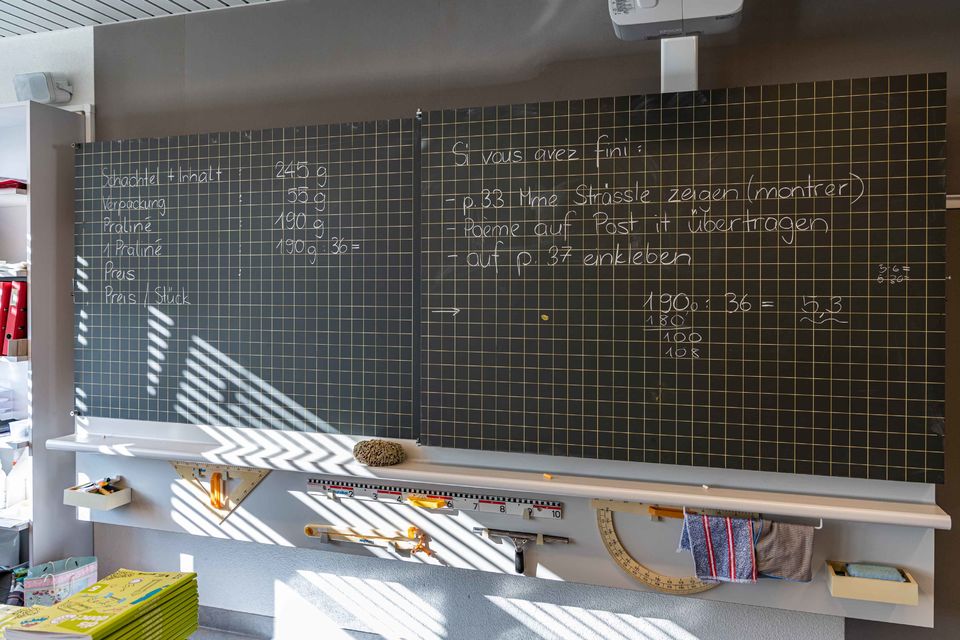 Schachtel + Inhalt : 245 g
Verpackung : 55 g
Praliné : 190 g
1 Praliné : 190g : 36 =
Preis :
Preis / Stück
Si vous avez fini :
- p.33 Mme Strässle zeigen (montrer)
- Poème auf Post it übertragen
- auf p. 37 einkleben
→ 190,0 : 36 = 5,3
180
100
108